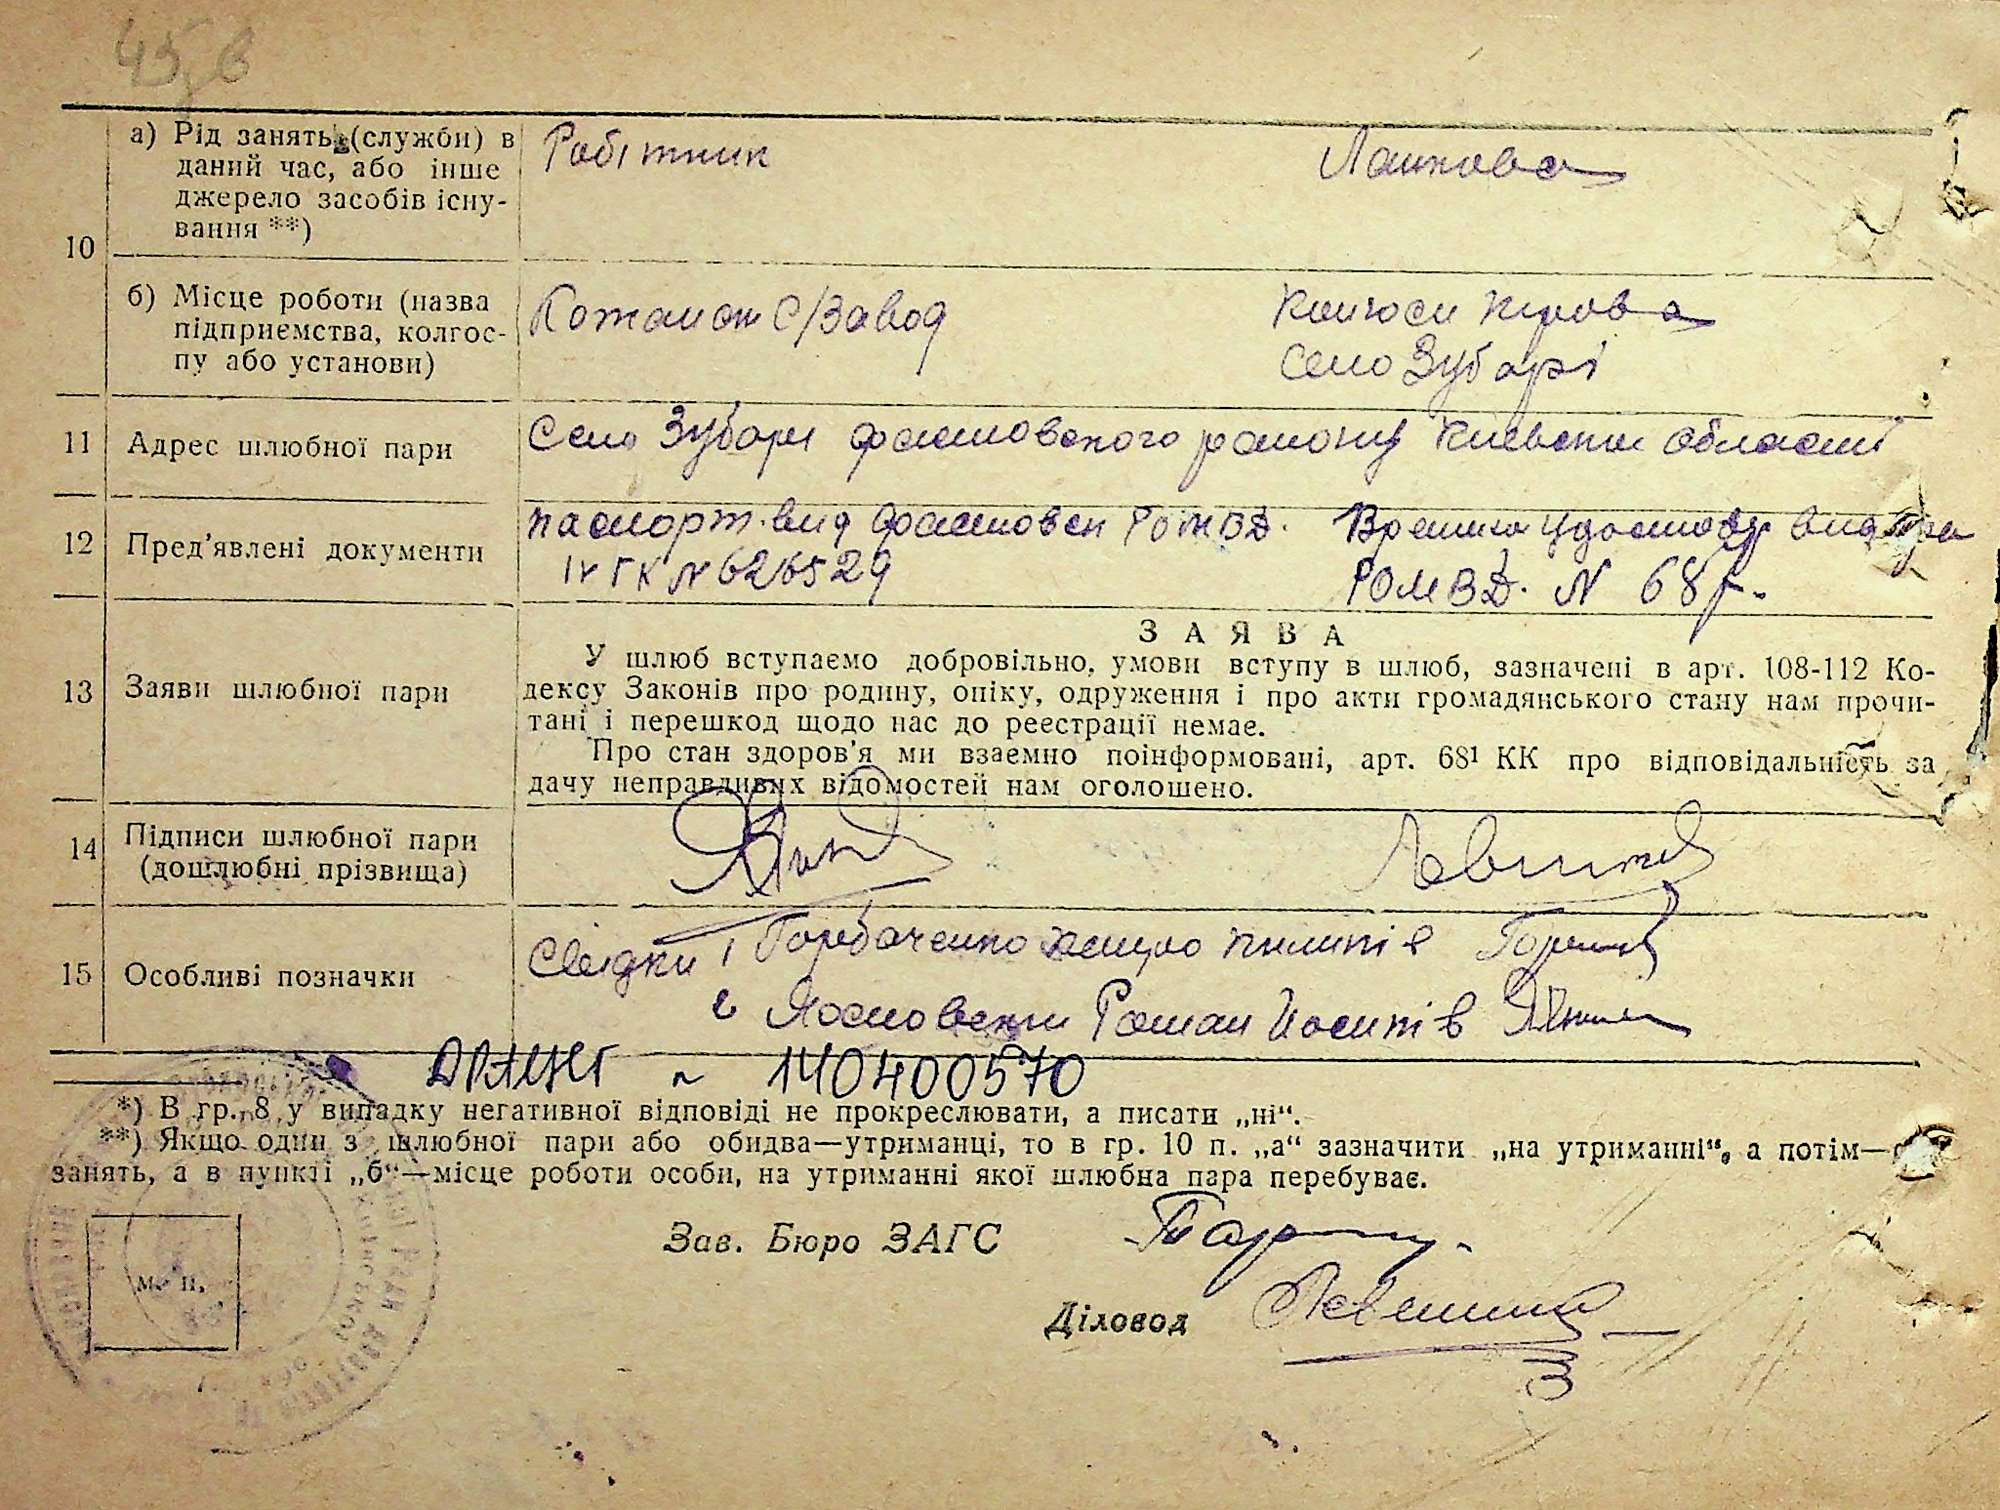 45,в
а) Рід занять (служби) в
даний час, або інше
джерело засобів існу-
вання **)
Робітник
Ланкова
10
б) Місце роботи (назва
підприємства, колгос-
пу або установи)
С/Завод
Кірова
село Зубарі
11
Адрес шлюбної пари
Село Зубари фастовского району Киевски області
12
Пред'явлені документи
паспорт вид фастовск РОМВД.
ІV ГК N 626529
РОМВД. N 687.
13
Заяви шлюбної пари
ЗАЯВА
У шлюб вступаємо добровільно, умови вступу в шлюб, зазначені в арт. 108-112 Ко-
дексу Законів про родину, опіку, одруження і про акти громадянського стану нам прочи-
тані і перешкод щодо нас до реєстрації немає.
Про стан здоров'я ми взаємно поінформовані, арт. 68¹ КК про відповідальність за
дачу неправдивих відомостей нам оголошено.
14
Підписи шлюбної пари
(дошлюбні прізвища)
15
Особливі позначки
Свідки Горбаченко Пилипів
Роман Йосипів
~ 140400570
*) В гр. 8 у випадку негативної відповіді не прокреслювати, а писати „ні“.
**) Якщо один з шлюбної пари або обидва—утриманці, то в гр. 10 п. „а“ зазначити „на утриманні“, а потім—
занять, а в пункті „б“—місце роботи особи, на утриманні якої шлюбна пара перебуває.
Зав. Бюро ЗАГС
м. п.
Діловод